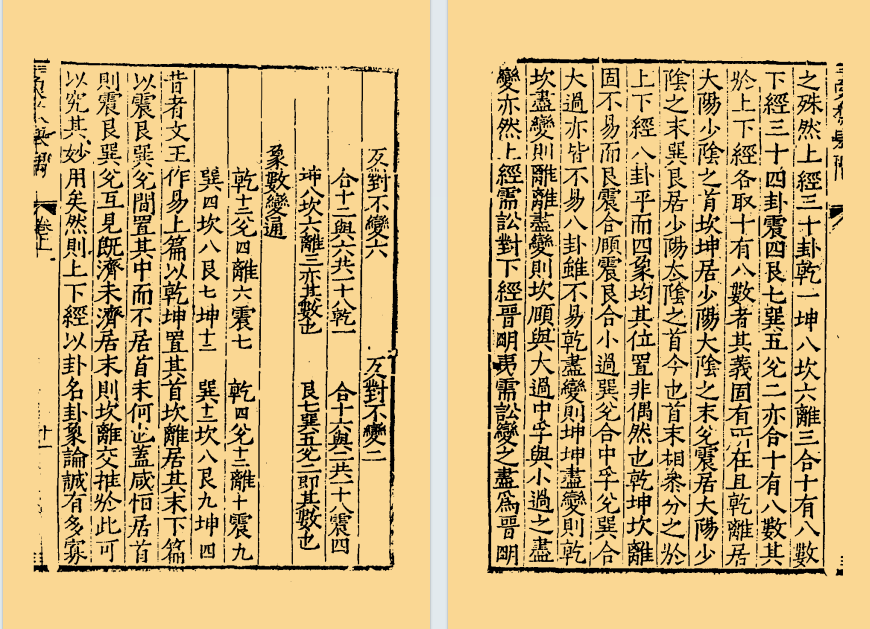 反對不變六　反對不變二
合十二與六共一十八乾一　合十六與二共一十八震四
坤八坎六離三亦其數也　艮七巽五兌二即其數也
象數變通
乾十二兌四離六震七　乾四兌十二離十震九
巽四坎八艮七坤十二　巽十二坎八艮九坤四
昔者文王作易上篇以乾坤置其首坎離居其末下篇
以震艮巽兌間置其中而不居首末何也蓋咸恒居首
則震艮巽兌互見既濟未濟居末則坎離交推於此可
以究其妙用矣然則上下經以卦名卦象論誠有多寡
卷上
十一
之殊然上經三十卦乾一坤八坎六離三合十有八數
下經三十四卦震四艮七巽五兌二亦合十有八數其
於上下經各取十有八數者其義固有所在且乾離居
大陽少陰之首坎坤居少陽大陰之末兌震居大陽少
陰之末巽艮居少陽太陰之首今也首末相參分之於
上下經八卦平而四象均其位置非偶然也乾坤坎離
固不易而艮震合頤震艮合小過巽兌合中孚兌巽合
大過亦皆不易八卦雖不易乾盡變則坤坤盡變則乾
坎盡變則離離盡變則坎頤與大過中孚與小過之盡
變亦然上經需訟對下經晉明夷需訟變之盡為晉明